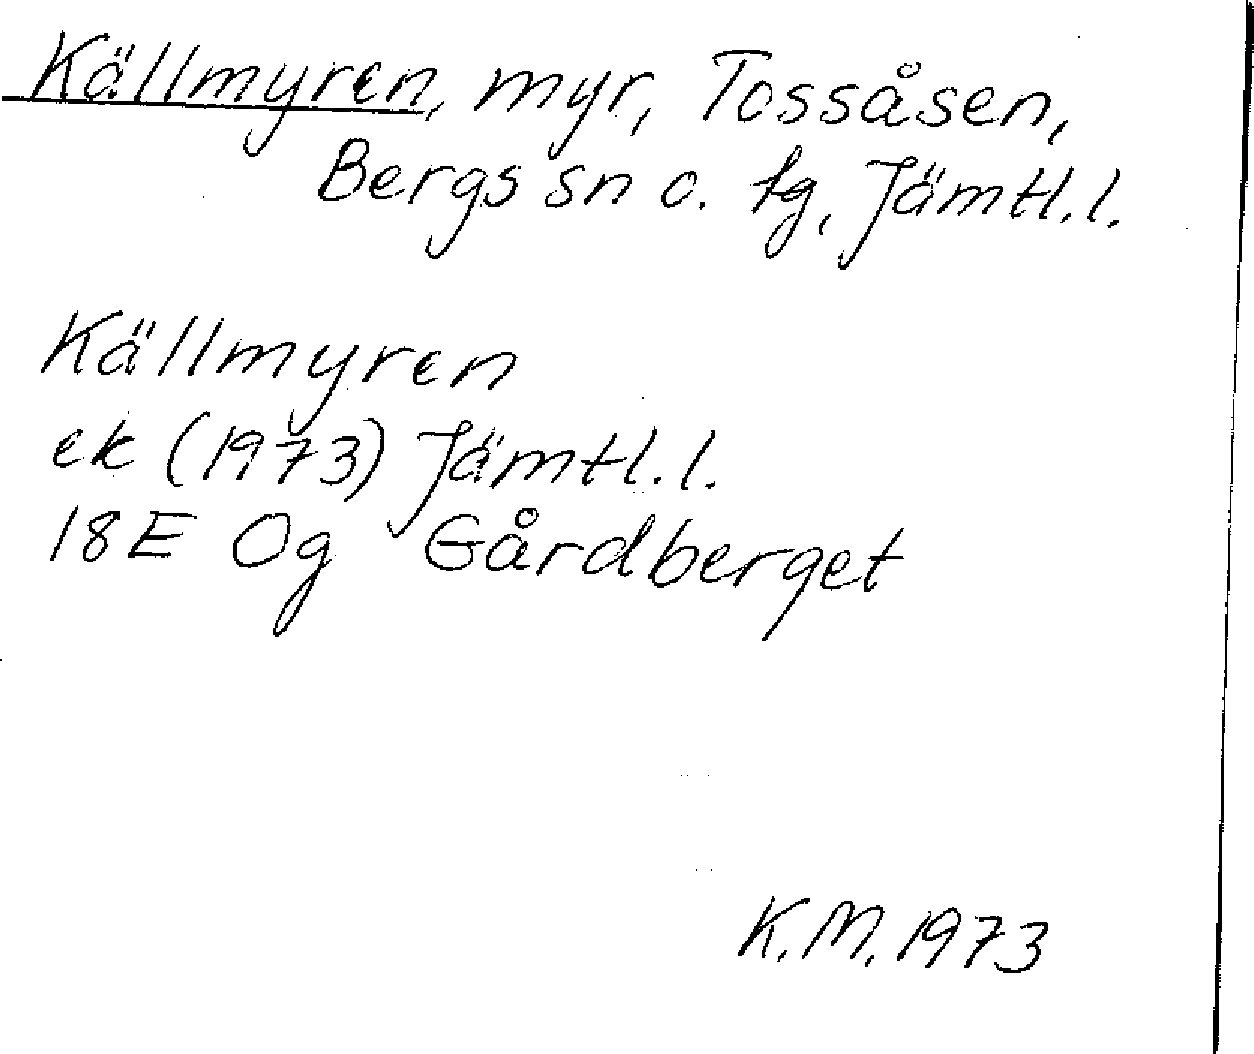 Källmyren, myr, Tossåsen,
Bergs sn o. tg, Jämtl. l.
Källmyren
ek (1973) Jämtl. l.
18E 0g Gårdberget
K.M. 1973